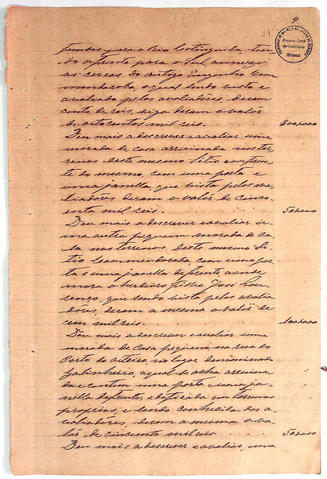 9
fundos para o Rio Cotinguiba, ten-
do a frente para o Sul, annexo
as cercas do antigo Engenho Com-
mandaroba, a qual sendo visto e
avaliado pelos avaliadores, deram
conta de reis, digo deram o valor
de oitocentos mil reis. 800#000
Deu mais a descrever e avaliar uma
morada de casa arruinada nos ter-
renos deste mesmo Sitio em fren-
te do mesmo, com uma porta e
uma janella, que vista pelos ava-
liadores deram o valor de cinco-
enta mil reis. 50#000
Deu mais a descrever e avaliar
uma outra pequena morada de ca-
sa nos terrenos deste mesmo Si-
tio Commandaroba, com uma por-
ta e uma janella de frente aonde
mora o herdeiro filho José
que sendo vista pelos avalia-
dores, deram a mesma o valor de
cem mil reis. 100#000
Deu mais a descrever e avaliar uma
morada de casa na rua do
Porto do Oiteiro, no lugar denominado
a qual se acha arruina-
da e contem uma porta e uma ja-
nella de frente, edificada em terrenos
proprios, e sendo conhecida dos a-
valiadores, deram a mesma o va-
lor de cincoenta mil reis. 50#000
Deu mais a descrever e avaliar, uma